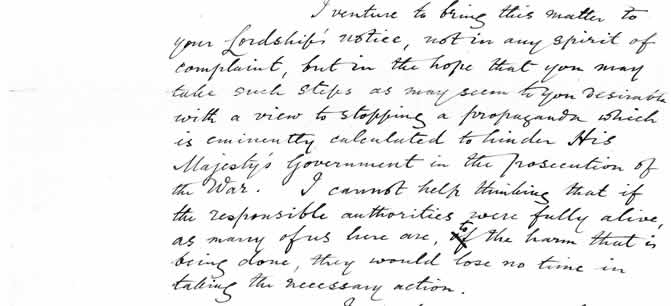 I venture to bring this matter to
your Lordship's notice, not in any spirit of
complaint, but in the hope that you may
take such steps as may seem to you desirable
with a view to stopping a propaganda which
is eminently calculated to hinder His
Majesty's Government in the prosecution of
the War. I cannot help thinking that if
the responsible authorities were fully alive,
as many of us here are, to the harm that is
being done, they would lose no time in
taking the necessary action.